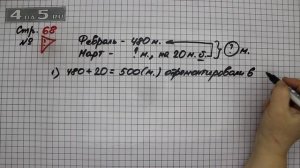 4 на 5. ru
Стр. 68
№ 1
Февраль - 480 м.
Март - ? м., на 20 м. б.
? м.
1) 480 + 20 = 500 (м.) отремонтировали в